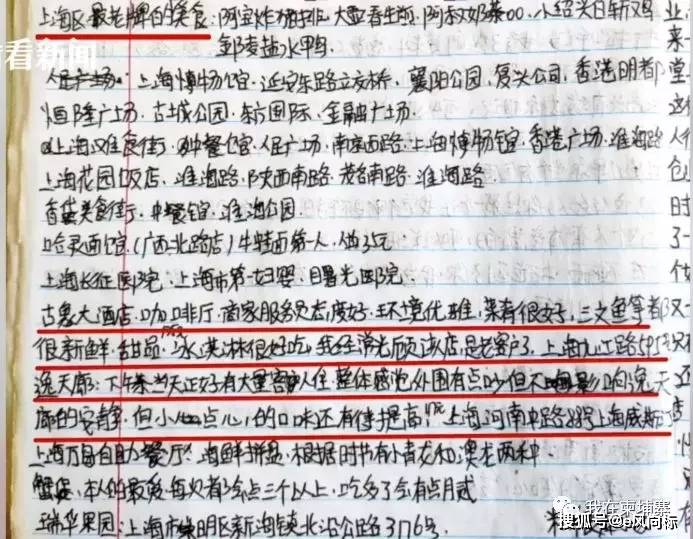 看看新闻
上海区最老牌的美食:阿宝炸猪排、大壶春生煎、阿叔奶茶00、小绍兴白斩鸡
邹凑盐水鸭
人民广场、上海博物馆、延安东路立交桥、襄阳公园、复兴公司、香港明都
恒隆广场、古城公园、东方国际、金融广场
上海汉唯食街、中餐馆、人民广场、南京西路、上海博物馆、香港广场、淮海路
上海花园饭店、淮海路、陕西南路、茂名南路、淮海路
香港美食街、中餐馆、淮海公园
哈灵面馆(广西北路店)牛特面第一人
上海长征医院、上海市第一妇婴、曙光医院
古象大酒店、咖啡厅、商家服务员态度好、环境优雅、菜肴很好、三文鱼等都
很新鲜、甜品、冰淇淋很好吃、我经常光顾该店、是老客户了、上海九江路595
逸天廊:下午茶当天正好有大量客人入住、整体感觉外围有点吵但不影响逸天
廊的安静、但小点心的口味还有待提高、上海河南中路
上海万象自助餐厅、海鲜拼盘、根据时节有小青龙和澳龙两种
蟹黄、本人的最爱、每次都会点三个以上、吃多了会有点月贰
瑞华果园:上海市崇明区新海镇北沿公路3176号
业
来
堂
人
仓
时
了
我在柬埔寨
搜狐号@b风向标